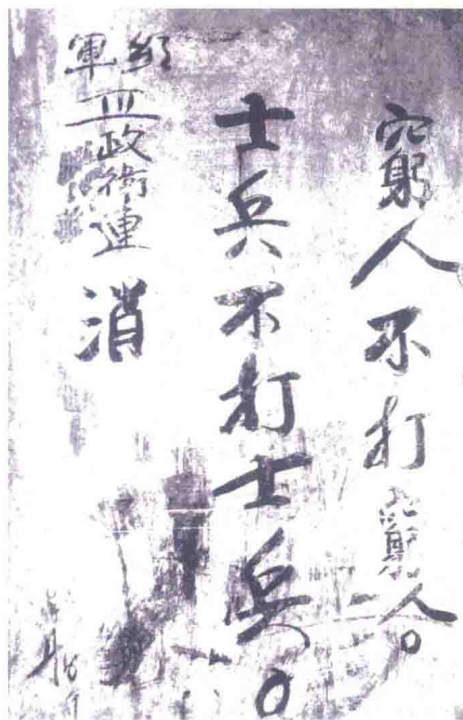 窮人不打窮人。
士兵不打士兵。
紅軍
政衛連
消